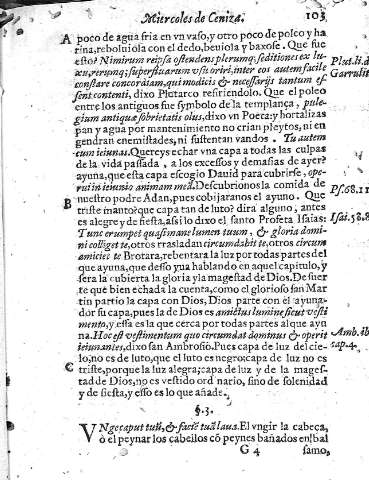 Miercoles de Ceniza. 103
A poco de agua fria en vn vaso, y otro poco de poleo y ha
rina, reboluiola con el dedo, beuiola y baxose. Que fue
esto? Nimirum reipsa ostendens plerumq; seditiones ex lu-
xu, rerumq; superfluarum vsu oriri, inter eos autem facile
constare concordiam, qui modicis & necessarijs tantum es
sent contenti, dixo Plutarco refiriendolo. Que el poleo
entre los antiguos fue symbolo de la templança, pule-
gium antiquæ sobrietatis olus, dixo vn Poeta: y hortalizas
pan y agua por mantenimiento no crian pleytos, ni en
gendran enemistades, ni sustentan vandos. Tu autem
cum ieiunas. Quereys echar vna capa a todas las culpas
de la vida passada, a los excessos y demasias de ayer?
ayuna, que esta capa escogio Dauid para cubrirse, ope-
rui in ieiunio animam meã. Descubrionos la comida de
B nuestro padre Adan, pues cobijaranos el ayuno. Que
triste manto? que capa tan de luto? dirá alguno, antes
es alegre y de fiesta, assi lo dixo el santo Profeta Isaias:
Tunc erumpet quasi mane lumen tuum, & gloria domi-
ni colliget te, otros trasladan circumdabit te, otros circum
amiciet te Brotara, rebentara la luz por todas partes del
que ayuna, que desso yua hablando en aquel capitulo, y
sera la cubierta la gloria y la magestad de Dios. De suer
te que bien echada la cuenta, como el glorioso san Mar
tin partio la capa con Dios, Dios parte con el ayuna-
dor su capa, pues la de Dios es amictus lumine sicut vesti
mento, y essa es la que cerca por todas partes al que ayu
na. Hoc est vestimentum quo circumdat dominus & operit
ieiunantes, dixo san Ambrosio. Pues capa de luz del cie-
lo, no es de luto, que el luto es negro: capa de luz no es
C triste, porque la luz alegra; capa de luz y de la mages-
tad de Dios, no es vestido ordinario, sino de solenidad
y de fiesta, y esso es lo que añade.
§. 3.
VNge caput tuũ, & faciẽ tuã laua. El vngir la cabeça,
ò el peynar los cabellos cõ peynes bañados en bal
G 4 samo,
Plut. li. d
Garrulit
Psf. 68. 11
Isai. 58. 8
Amb. ib
cap. 4.